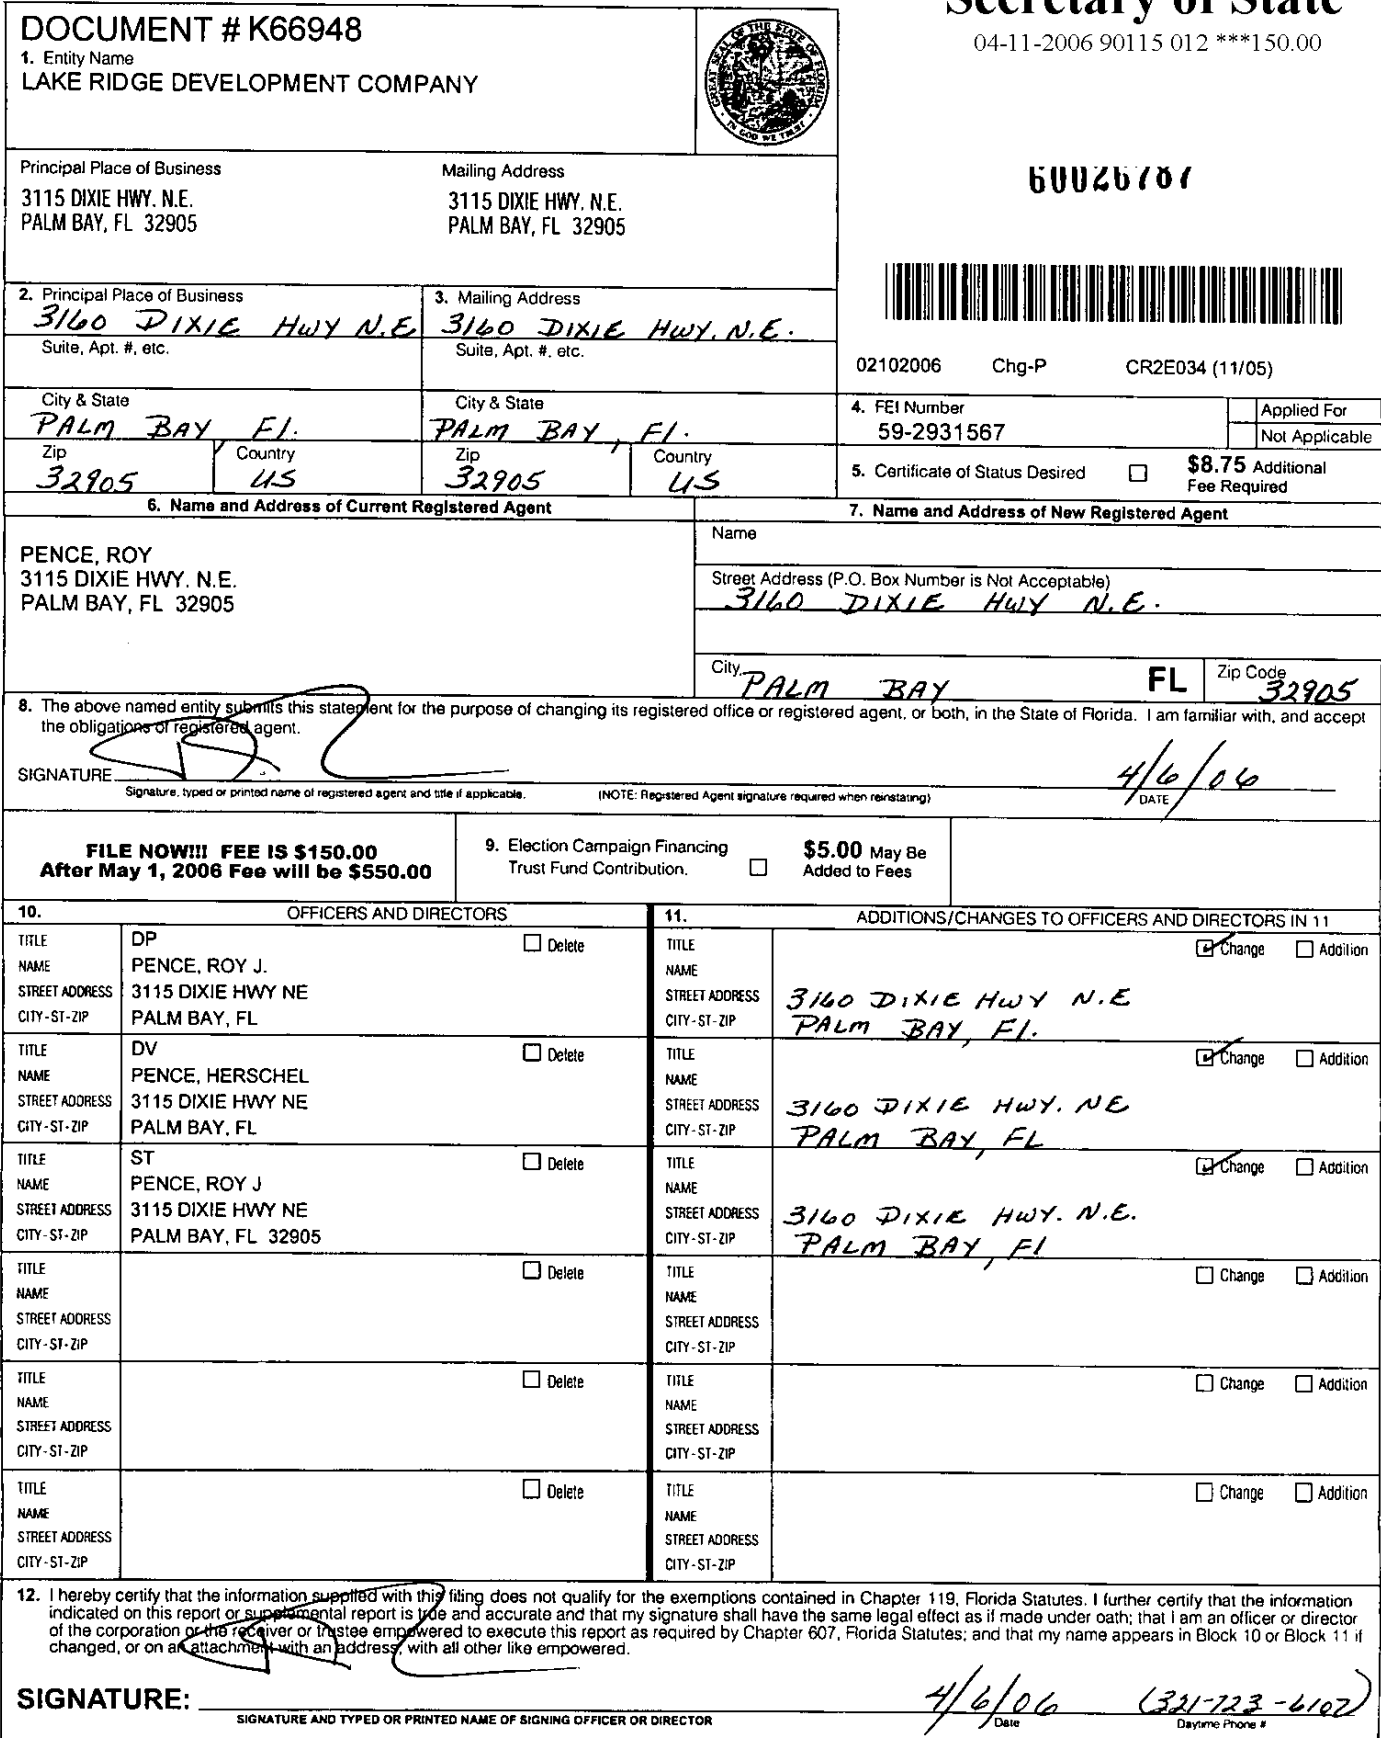 Secretary of State
04-11-2006 90115 012 ***150.00
DOCUMENT # K66948
1. Entity Name
LAKE RIDGE DEVELOPMENT COMPANY
GREAT SEAL OF THE STATE OF FLORIDA
IN GOD WE TRUST
Principal Place of Business
3115 DIXIE HWY. N.E.
PALM BAY, FL 32905
Mailing Address
3115 DIXIE HWY. N.E.
PALM BAY, FL 32905
60026787
2. Principal Place of Business
3160 DIXIE HWY N.E
Suite, Apt. #, etc.
3. Mailing Address
3160 DIXIE HWY. N.E.
Suite, Apt. #, etc.
02102006 Chg-P CR2E034 (11/05)
City & State
PALM BAY, Fl.
City & State
PALM BAY, Fl.
Zip
32905
Country
US
Zip
32905
Country
US
4. FEI Number
59-2931567
Applied For
Not Applicable
5. Certificate of Status Desired
$8.75 Additional
Fee Required
6. Name and Address of Current Registered Agent
PENCE, ROY
3115 DIXIE HWY. N.E.
PALM BAY, FL 32905
7. Name and Address of New Registered Agent
Name
Street Address (P.O. Box Number is Not Acceptable)
3160 DIXIE HWY N.E.
City
PALM BAY
FL
Zip Code
32905
8. The above named entity submits this statement for the purpose of changing its registered office or registered agent, or both, in the State of Florida. I am familiar with, and accept
the obligations of registered agent.
SIGNATURE
4/6/06
Signature, typed or printed name of registered agent and title if applicable.
(NOTE: Registered Agent signature required when reinstating)
DATE
FILE NOW!!! FEE IS $150.00
After May 1, 2006 Fee will be $550.00
9. Election Campaign Financing
Trust Fund Contribution.
$5.00 May Be
Added to Fees
10. OFFICERS AND DIRECTORS
TITLE DP Delete
NAME PENCE, ROY J.
STREET ADDRESS 3115 DIXIE HWY NE
CITY-ST-ZIP PALM BAY, FL
TITLE DV Delete
NAME PENCE, HERSCHEL
STREET ADDRESS 3115 DIXIE HWY NE
CITY-ST-ZIP PALM BAY, FL
TITLE ST Delete
NAME PENCE, ROY J
STREET ADDRESS 3115 DIXIE HWY NE
CITY-ST-ZIP PALM BAY, FL 32905
TITLE Delete
NAME
STREET ADDRESS
CITY-ST-ZIP
TITLE Delete
NAME
STREET ADDRESS
CITY-ST-ZIP
TITLE Delete
NAME
STREET ADDRESS
CITY-ST-ZIP
11. ADDITIONS/CHANGES TO OFFICERS AND DIRECTORS IN 11
TITLE Change Addition
NAME
STREET ADDRESS 3160 DIXIE HWY N.E
CITY-ST-ZIP PALM BAY, Fl.
TITLE Change Addition
NAME
STREET ADDRESS 3160 DIXIE HWY. NE
CITY-ST-ZIP PALM BAY, FL
TITLE Change Addition
NAME
STREET ADDRESS 3160 DIXIE HWY. N.E.
CITY-ST-ZIP PALM BAY, Fl
TITLE Change Addition
NAME
STREET ADDRESS
CITY-ST-ZIP
TITLE Change Addition
NAME
STREET ADDRESS
CITY-ST-ZIP
TITLE Change Addition
NAME
STREET ADDRESS
CITY-ST-ZIP
12. I hereby certify that the information supplied with this filing does not qualify for the exemptions contained in Chapter 119, Florida Statutes. I further certify that the information
indicated on this report or supplemental report is true and accurate and that my signature shall have the same legal effect as if made under oath; that I am an officer or director
of the corporation or the receiver or trustee empowered to execute this report as required by Chapter 607, Florida Statutes; and that my name appears in Block 10 or Block 11 if
changed, or on an attachment with an address, with all other like empowered.
SIGNATURE:
4/6/06 (321-723-6102)
SIGNATURE AND TYPED OR PRINTED NAME OF SIGNING OFFICER OR DIRECTOR
Date
Daytime Phone #